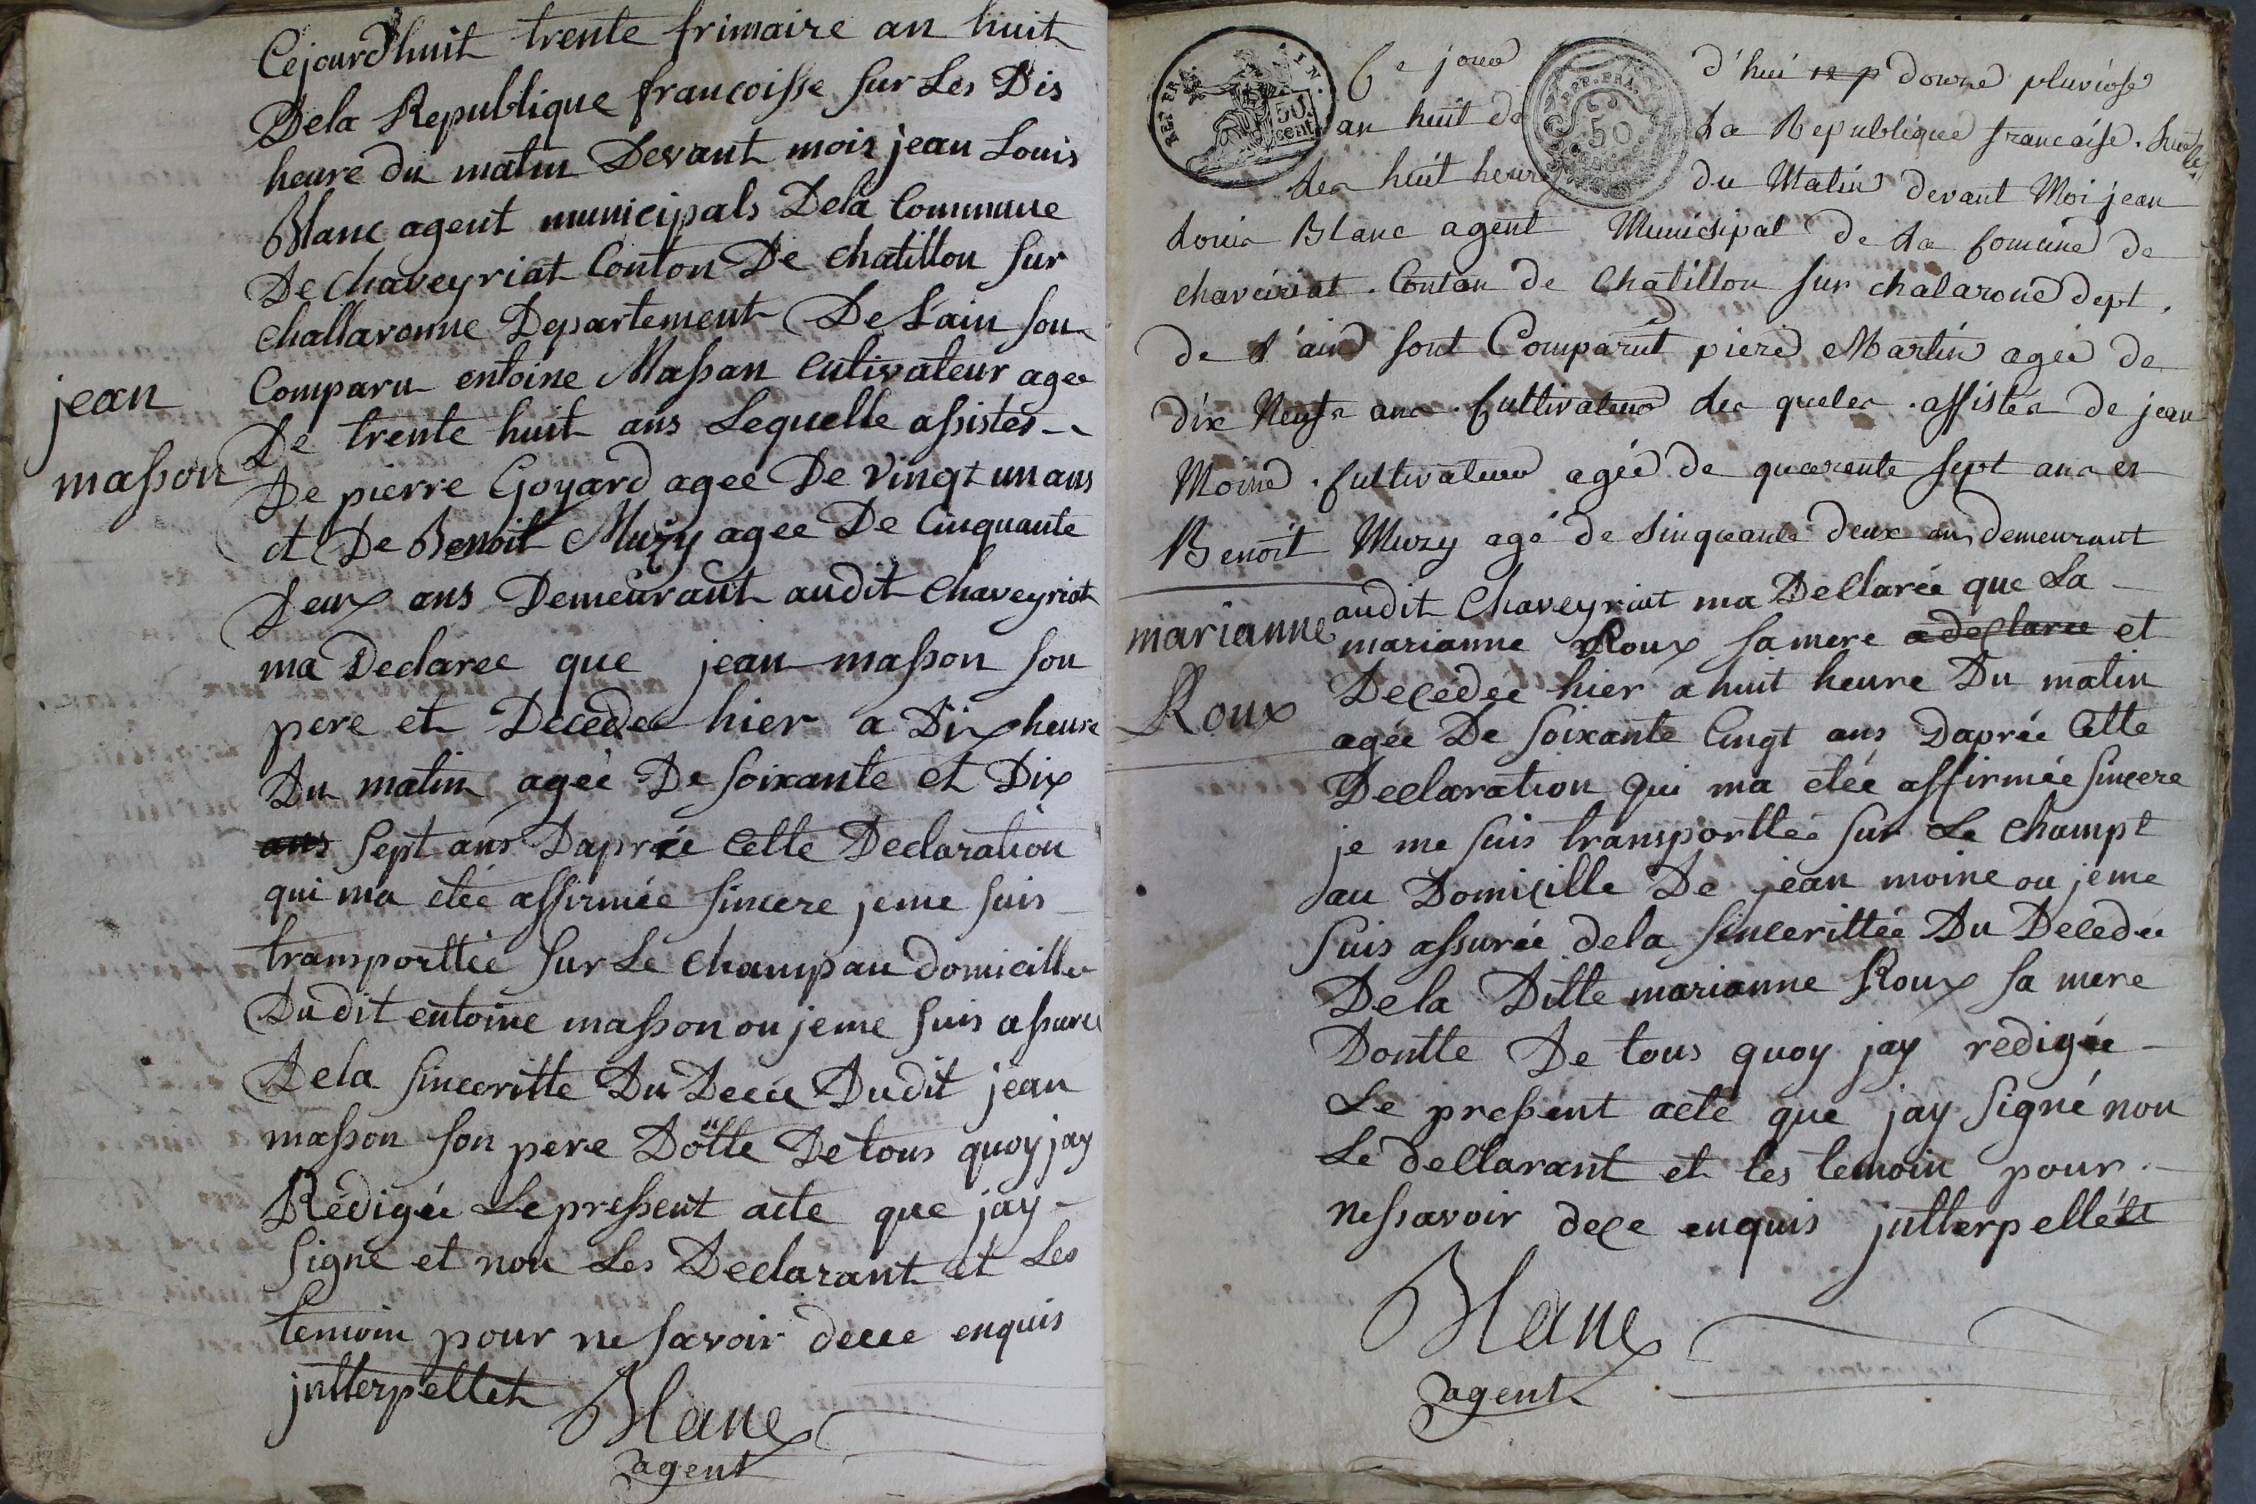 Cejourd'huit trente frimaire an huit
Dela Republique francoisse sur Les Dis
heure du matin Devant mois jean Louis
Blanc agent municipals Dela Commune
De chaveyriat Conton De chatillon sur
challaronne Departement De Lain son
Comparu entoine Masson Cutivateur agee
De trente huit ans Lequelle assistes
De pierre Goyard agee De vingt un ans
et De Benoit Muzy agee De Cinquante
Deux ans Demeurant audit chaveyriat
ma Declaree que jean masson son
pere et Decedee hier a Dix heure
Du matin agée De soixante et Dix
ans sept ans Daprée Cette Declaration
qui ma etée affirmée sincere jeme suis
transporttée sur Le champ au domicille
Dudit entoine masson ou jeme suis assuré
Dela sinceritte Du Decée Dudit jean
masson son pere Dotte De tous quoy jay
Rédigée Le pressent acte que jay
signe et non Les Declarant et Les
temoin pour ne savoir dece enquis
jntterpellet
Blanc
agent
jean
masson
Ce jour d'hui douze pluviose
an huit de La Republique francaise. sur
les huit heure du Matin devant Moi jean
Louis Blanc agent Municsipal de La Comune de
chaveiriat. Conton de Chatillon sur chalarone dept.
de l'ain sont Comparut piere Martin agée de
dix Neufs ans. Cultivateur les queles. assistés de jean
Moine. Cultivateur agée de quarente sept ans et
Benoit Muzy agé de sinquante deux ans demeurant
audit Chaveyriat ma Dellarée que La
marianne Roux sa mere a declaree et
Decedée hier a huit heure Du matin
agée De soixante Cingt ans Daprée Cette
Declaration qui ma etée affirmée sincere
je me suis transporttée sur Le Champt
au Domicille De jean moine ou jeme
suis assurée dela sincerittée Du Decedée
De la Ditte marianne Roux sa mere
Dontte De tous quoy jay redigée
Le pressent acte que jay signé non
Le dellarant et les temoin pour
nessavoir dece enquis jntterpellét
Blanc
agent
marianne
Roux
REP. FRA.
50
cent
REP. FRA.
50